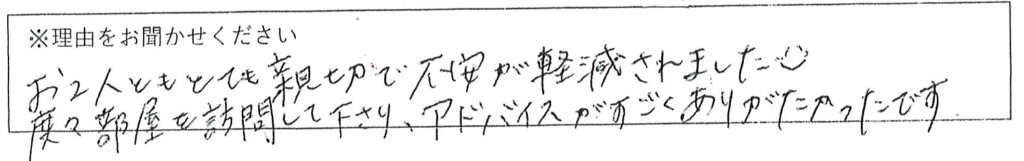 ※理由をお聞かせください
お2人ともとても親切で不安が軽減されました☺
度々部屋を訪問して下さり、アドバイスがすごくありがたかったです